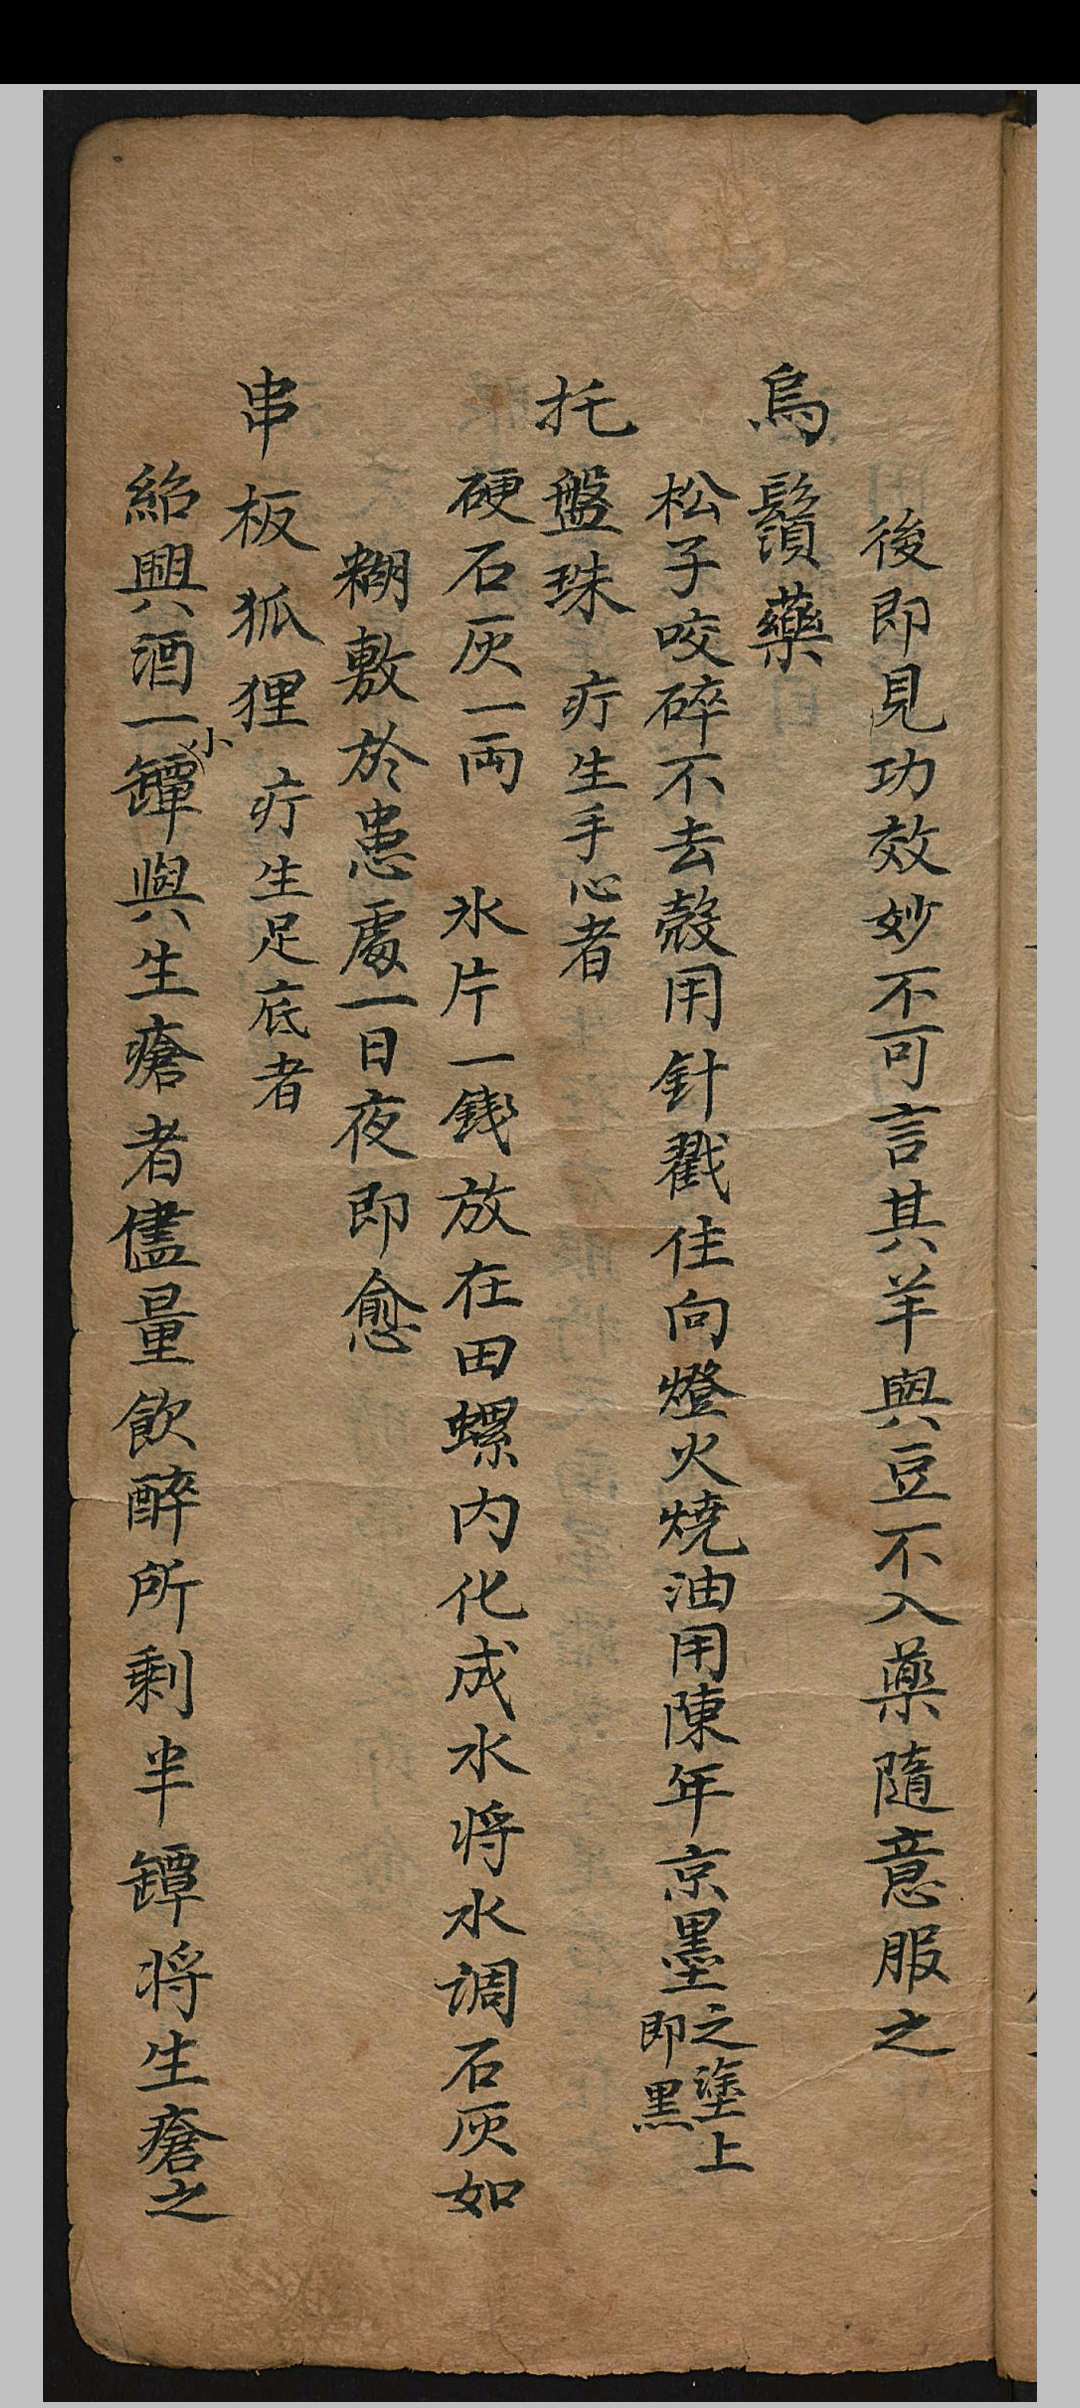 後即見功效妙不可言其羊與豆不入藥隨意服之
烏鬚藥
松子咬碎不去殼用針戳住向燈火燒油用陳年京墨之塗上即黑
托盤珠 疔生手心者
硬石灰一両 氷片一錢放在田螺内化成水將水调石灰如
糊敷於患處一日夜即愈
串板狐狸 疔生足底者
紹興酒一小罈與生瘡者儘量飲醉所剩半罈將生瘡之